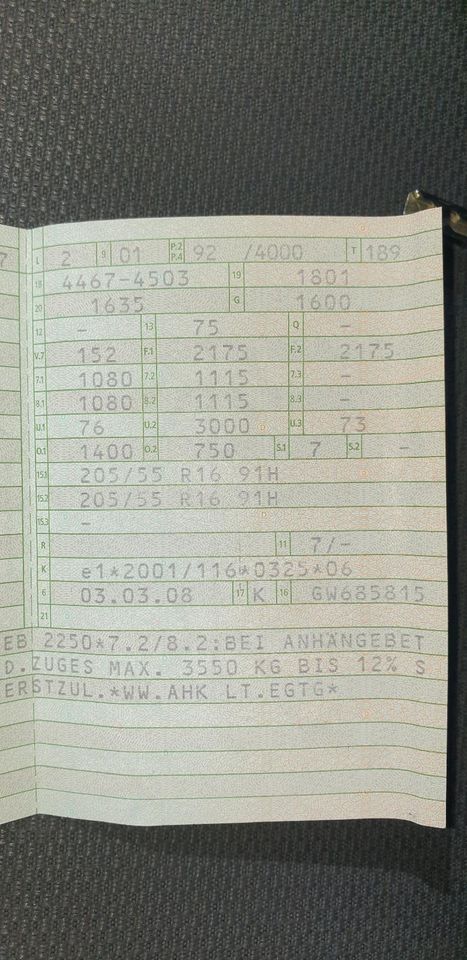 7 L 2 9 01 P.2 P.4 92 /4000 T 189
18 4467-4503 19 1801
20 1635 G 1600
12 - 13 75 Q -
V.7 152 F.1 2175 F.2 2175
7.1 1080 7.2 1115 7.3 -
8.1 1080 8.2 1115 8.3 -
U.1 76 U.2 3000 U.3 73
O.1 1400 O.2 750 S.1 7 S.2 -
15.1 205/55 R16 91H
15.2 205/55 R16 91H
15.3 -
R 11 7/-
K e1*2001/116*0325*06
6 03.03.08 17 K 16 GW685815
21
EB 2250*7.2/8.2:BEI ANHÄNGEBET
D.ZUGES MAX. 3550 KG BIS 12% S
ERSTZUL.*WW.AHK LT.EGTG*